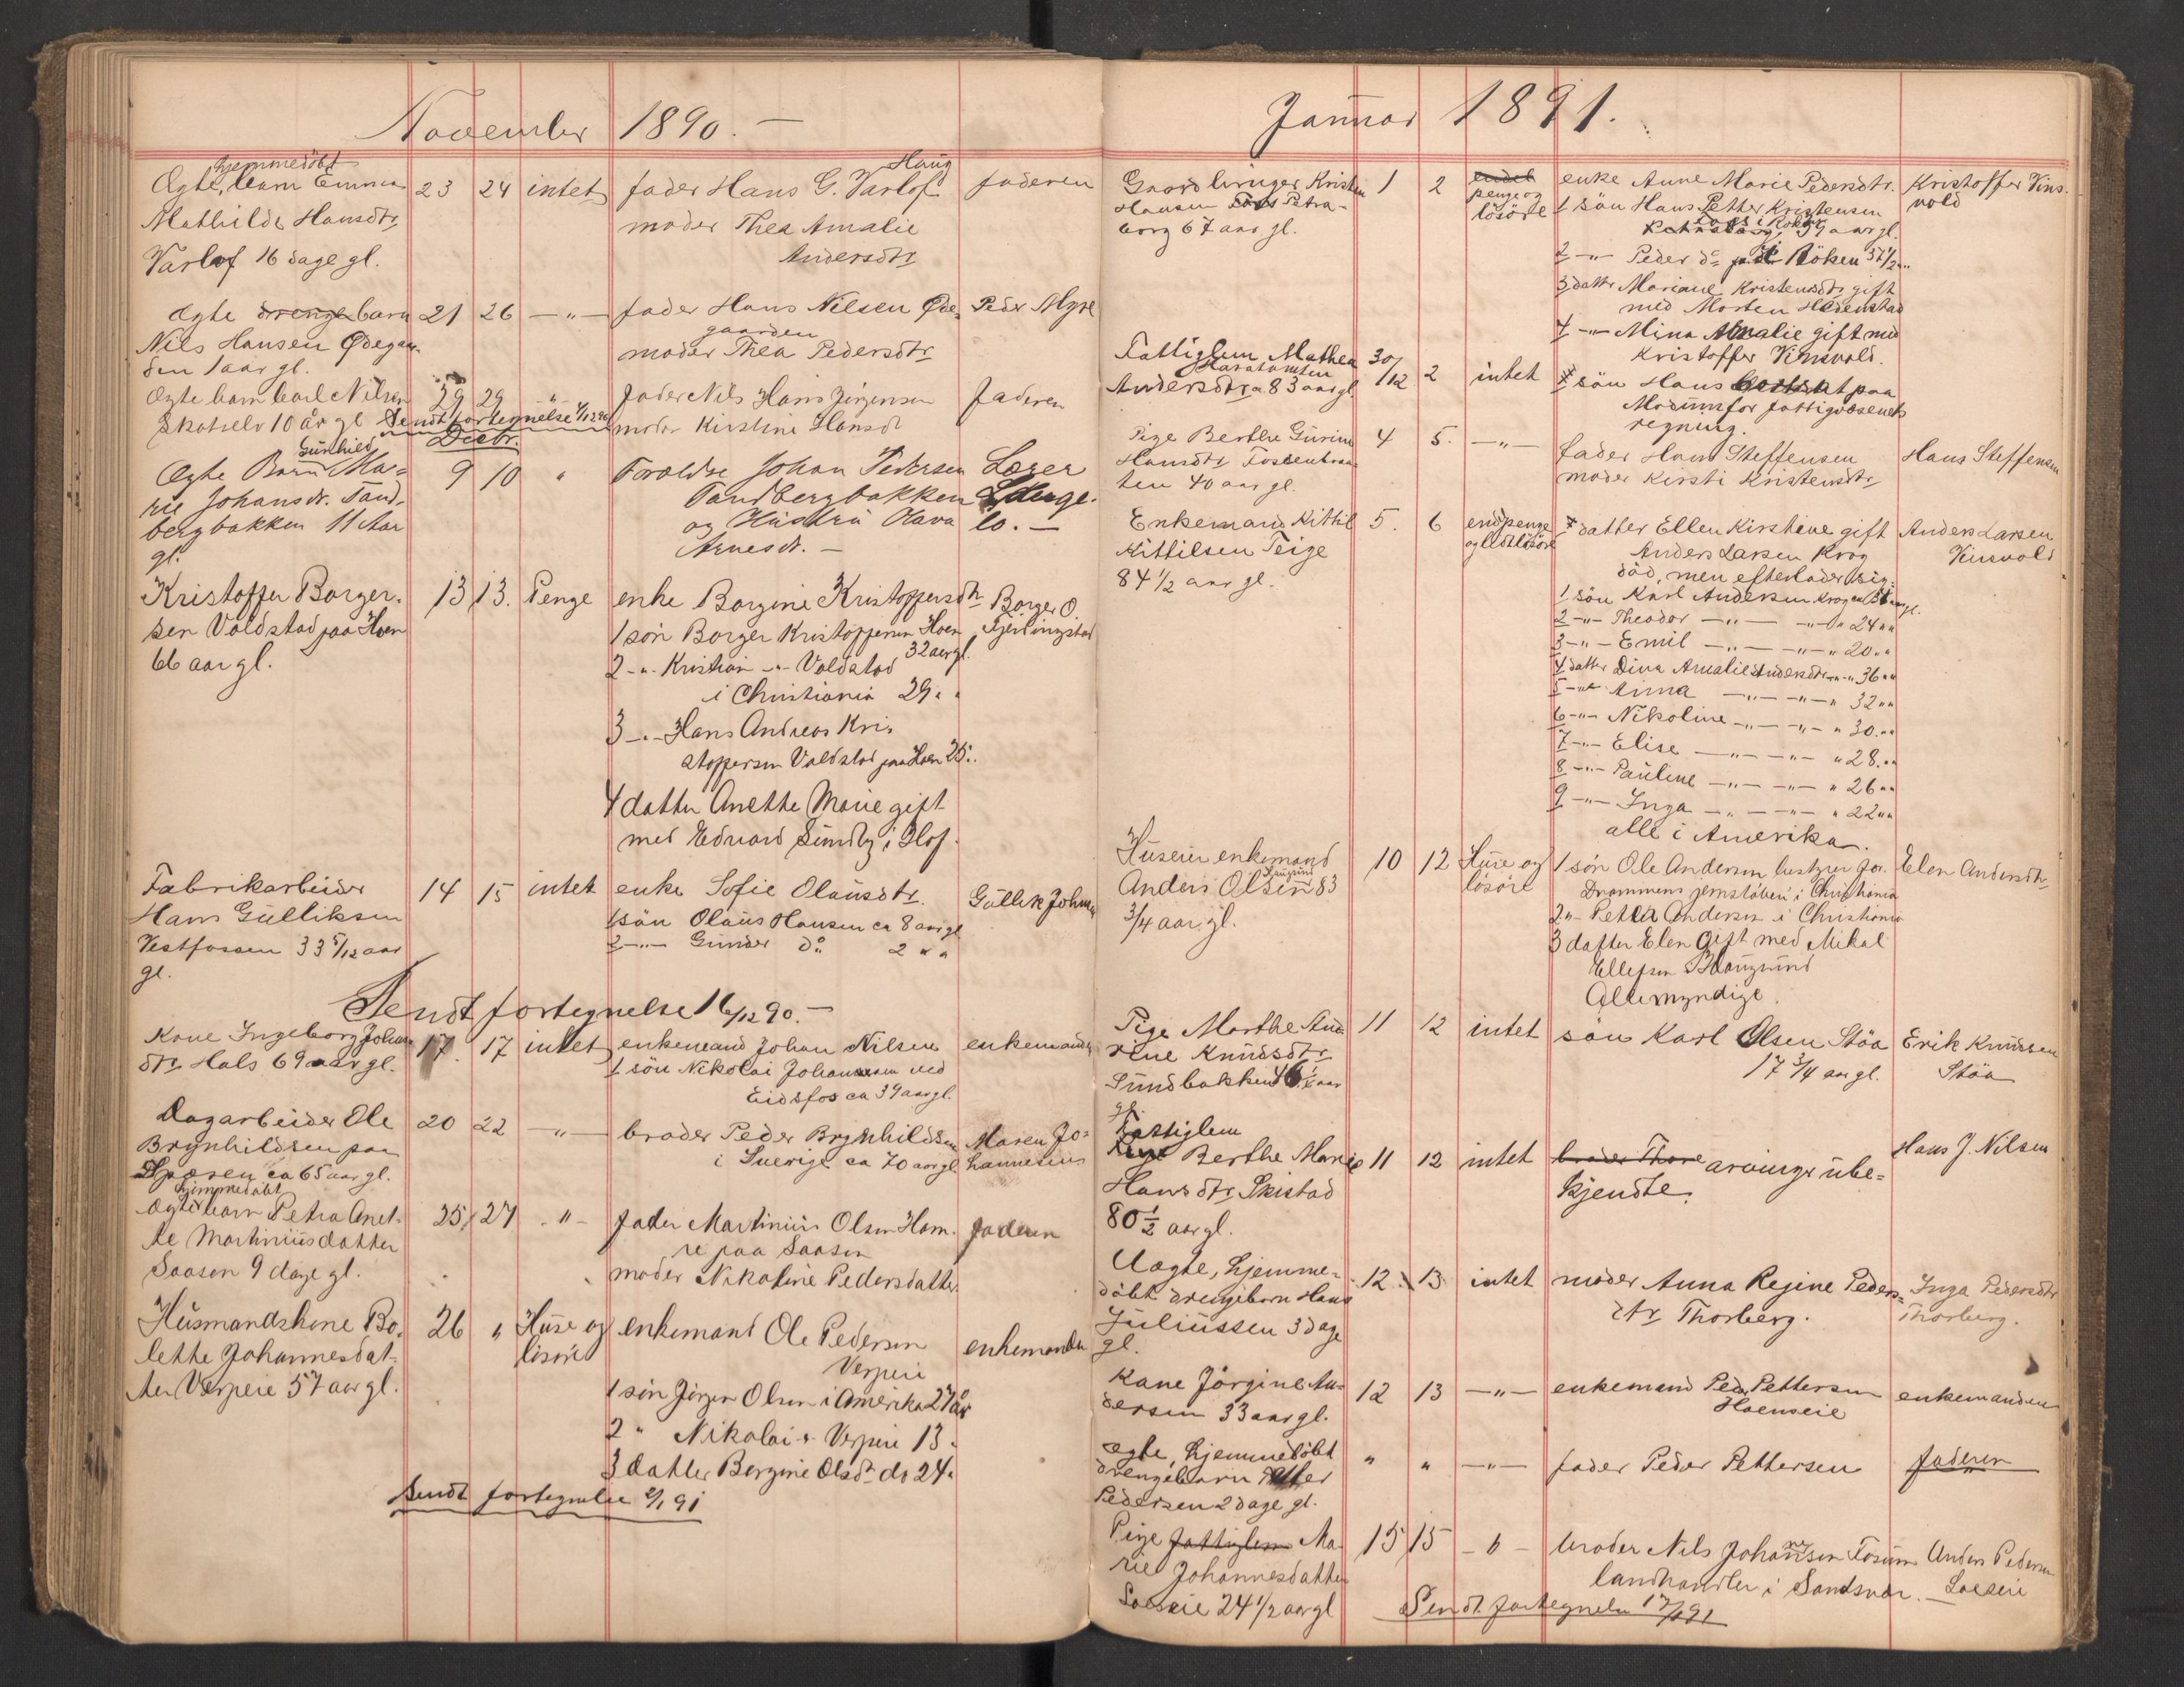 November 1890. —
hjemmedöbt
Ægte, barn Emma 23 24 intet fader Hans G. Varlof Haug faderen
Mathilde Hansdtr moder Thea Amalie
Varlof 16 dage gl. Andersdtr
Ægte drenge barn 21 26 —„— fader Hans Nilsen Øde- Peder Myre
Nils Hansen Ødegaar- gaarden
den 1 aar gl. moder Thea Pedersdtr
Ægte barn Carl Nilsen 29 29 „ fader Nils Hans Jörgensen Faderen
Skotselv 10 år gl Sendt fortegnelse 1/12 90 moder Kirstine Hansdt
Decbr.
Gunhild
Ægte Barn Ma- 9 10 „ Forældre Johan Pedersen Lærer
rie Johansdr. Tand- Tandbergbakken
bergbakken 11 Aar og Hustru Hava lo. —
gl. Arnesdr. —
Kristoffer Borger- 13 13. Penge enke Borgine Kristoffersdtr Borger O.
sen Voldstad paa Hoen 1 sön Borger Kristoffersen Hoen Gjerdingstad
66 aar gl. 32 aar gl.
2 -„- Kristian -„- Voldstad
i Christiania 29 „ „
3 -„- Hans Andreas Kri-
stoffersen Voldstad paa Hoen 25 „
4 datter Anethe Marie gift
med Edvard Sundby i Hof.
Fabrikarbeider 14 15 intet enke Sofie Olausdtr. Gullik Johnsen
Hans Gulliksen 1 sön Olaus Hansen ca 8 aar gl
Vestfossen 33 5/12 aar 2 -„- Gunder do 2 „ „
gl.
Sendt fortegnelse 16/12 90. —
Kone Ingeborg Johan- 17. 17 intet enkemand Johan Nilsen enkemanden
dtr Hals 69 aar gl. 1 sön Nikolai Johannesen ved
Eidsfos ca 39 aar gl.
Dagarbeider Ole 20 22 —„— broder Peder Brynhildsen Maren Jo-
Brynhildsen paa i Sverige ca 70 aar gl hannesens
ca 65 aar gl.
hjemmedöbt
Ægte barn Petra Anet- 25 27 -„- Fader Martinius Olsen Ham- faderen
te Martiniusdatter re paa Saasen
Saasen 9 dage gl. moder Nikoline Pedersdatter
Husmandskone Bo- 26 „ Huse og enkemand Ole Pedersen enkemanden
lette Johannesdat- lösöre Verpeie
ter Verpeie 57 aar gl.
1 sön Jörgen Olsen i Amerika 27 år
2 „ Nikolai -„- Verpeie 13 „
3 datter Borgine Olsdr do 24 „
Sendt fortegnelse 2/1 91
Januar 1891.
Gaardbruger Kristen 1 2 penge og enke Anne Marie Pedersdtr. Kristoffer Vins-
Hansen Petra- lösöre 1 sön Hans Petter Kristensen vold
borg 67 aar gl. 39 aar gl.
2 -„- Peder do i Röken 37 1/2 „
3 datter Mariane Kristensdtr gift
med Morten Hedenstad
4 -„- Mina Amalie gift med
Kristoffer Vinsvold.
Fattiglem Mathea 30/12 2 intet sön Hans bortsat paa
Andersdtr ca 83 aar gl Modum for fattigvæsenets
regning.
Pige Berthe Gurine 4 5. —„— fader Hans Steffensen Hans Steffensen
Hansdtr Fossenbraa- moder Kirsti Kristensdtr
ten 40 aar gl.
Enkemand Kittil 5. 6 penge datter Ellen Kirstine gift Anders Larsen
Kittilsen Teige og lidt lösöre Anders Larsen Krog Vinsvold
84 1/2 aar gl. död, men efterlader sig:
1 sön Karl Andersen Krog ca 38 aar gl.
2 -„- Theodor —„— —„— „ 24 „„
3 -„- Emil —„— —„— „ 20 „„
4 datter Dina Amalie Andersdtr -„- „ 36 „„
5 -„- Anna —„— —„— „ 32 „„
6 -„- Nikoline —„— —„— „ 30 „„
7 -„- Elise —„— —„— „ 28 „„
8 -„- Pauline —„— —„— „ 26 „„
9 -„- Inga —„— —„— „ 22 „„
alle i Amerika.
Huseier enkemand 10 12 Huse og 1 sön Ole Andersen bestyrer for Elen Andersdtr
Anders Olsen Haugrund 83 lösöre Drammens jernstöberi i Christiania
3/4 aar gl. 2 „ Petter Andersen i Christiania
3 datter Elen gift med Mikal
Ellefsen Haugrund
Alle myndige.
Pige Marthe And- 11 12 intet sön Karl Olsen Stöa Erik Knudsen
rine Knudsdtr 17 3/4 aar gl. Stöa
Sundbakken 46 1/2 aar
gl.
Fattiglem
Pige Berthe Marie 11 12 intet broder Thore arvinger ube- Hans J. Nilsen
Hansdtr Skistad kjendte.
80 1/2 aar gl.
Uægte, hjemme- 12. 13 intet moder Anna Regine Peders- Inga Pedersdtr
döbt drengebarn Hans dtr Thorberg. Thorberg.
Juliussen 3 dage
gl.
Kone Jörgine An- 12 13 —„— enkemand Peder Pettersen enkemanden
dersen 33 aar gl. Hoenseie
ægte, hjemmedöbt „ „ —„— fader Peder Pettersen faderen
drengebarn Petter
Pedersen 2 dage gl.
Pige fattiglem Ma- 15 15 -„- broder Nils Johannsen Fosum Anders Pedersen
rie Johannesdatter landhandler i Sandsvær. Loeseie
Loeseie 24 1/2 aar gl Sendt fortegnelse 17/1 91